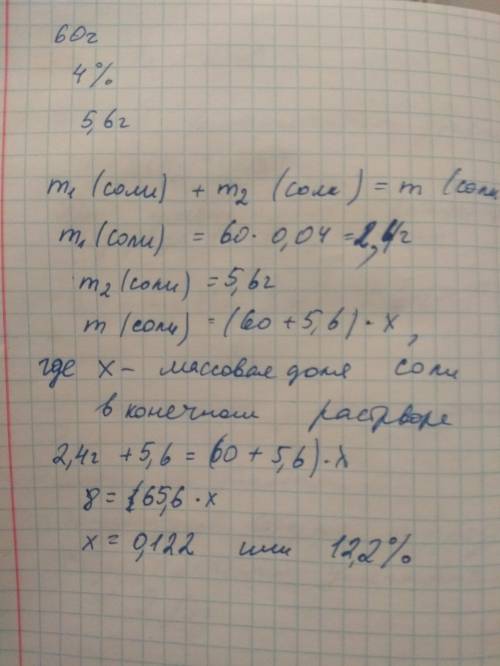 60г
4%
5,6г
m₁ (соли) + m₂ (соли) = m (соли
m₁ (соли) = 60 · 0,04 = 2,4г
m₂ (соли) = 5,6г
m (соли) = (60 + 5,6) · x,
где x – массовая доля соли
в конечном растворе
2,4г + 5,6 = (60 + 5,6) · x
8 = 65,6 · x
x = 0,122 или 12,2%